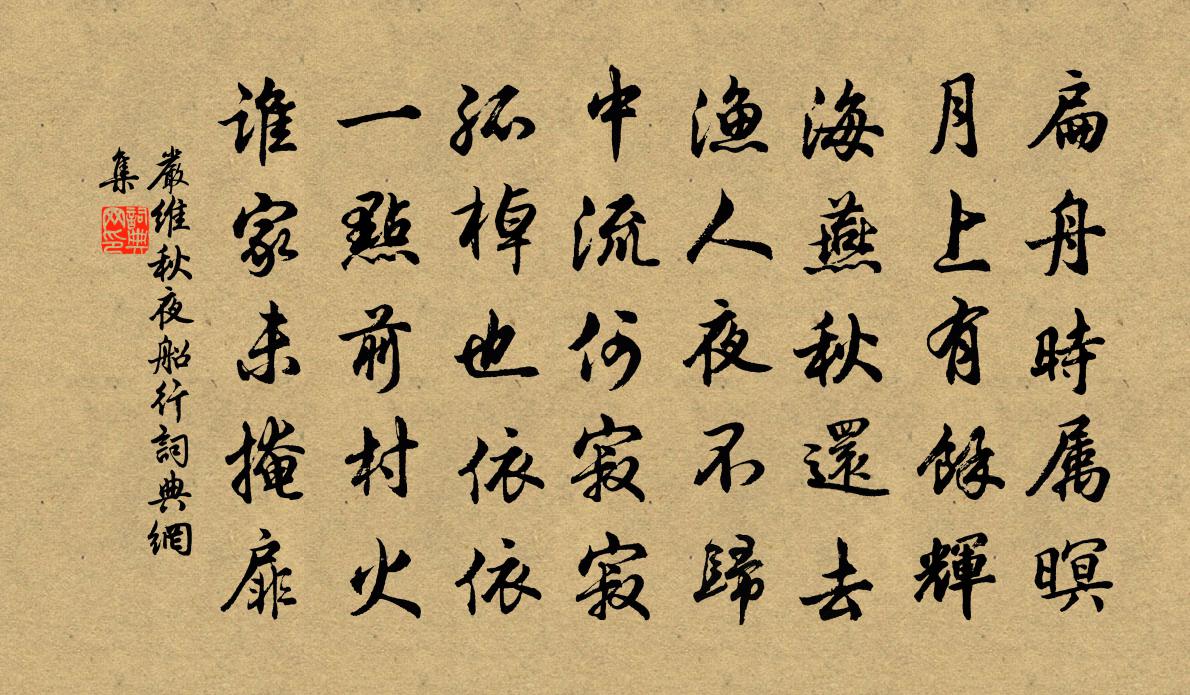 扁舟時属暝
月上有餘輝
海燕秋還去
漁人夜不歸
中流何寂寂
孤棹也依依
一點前村火
誰家未掩扉
嚴維秋夜船行詞典網
集
詞典
网印